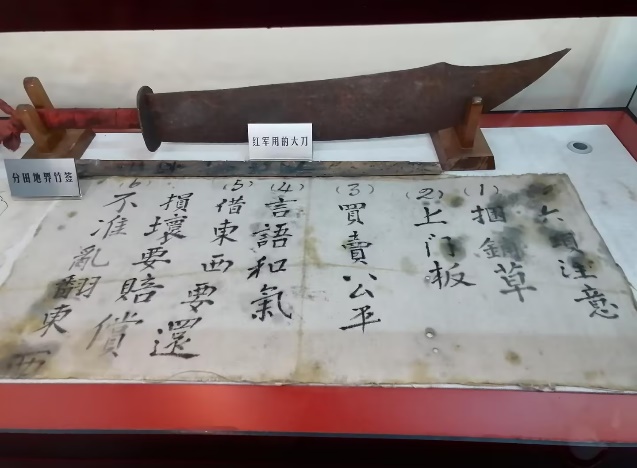 红军用的大刀
分田地界竹签
六項注意
(1) 捆鋪草
(2) 上门板
(3) 買賣公平
(4) 言語和氣
(5) 借東西要還
損壞要賠償
(6) 不准亂翻東西